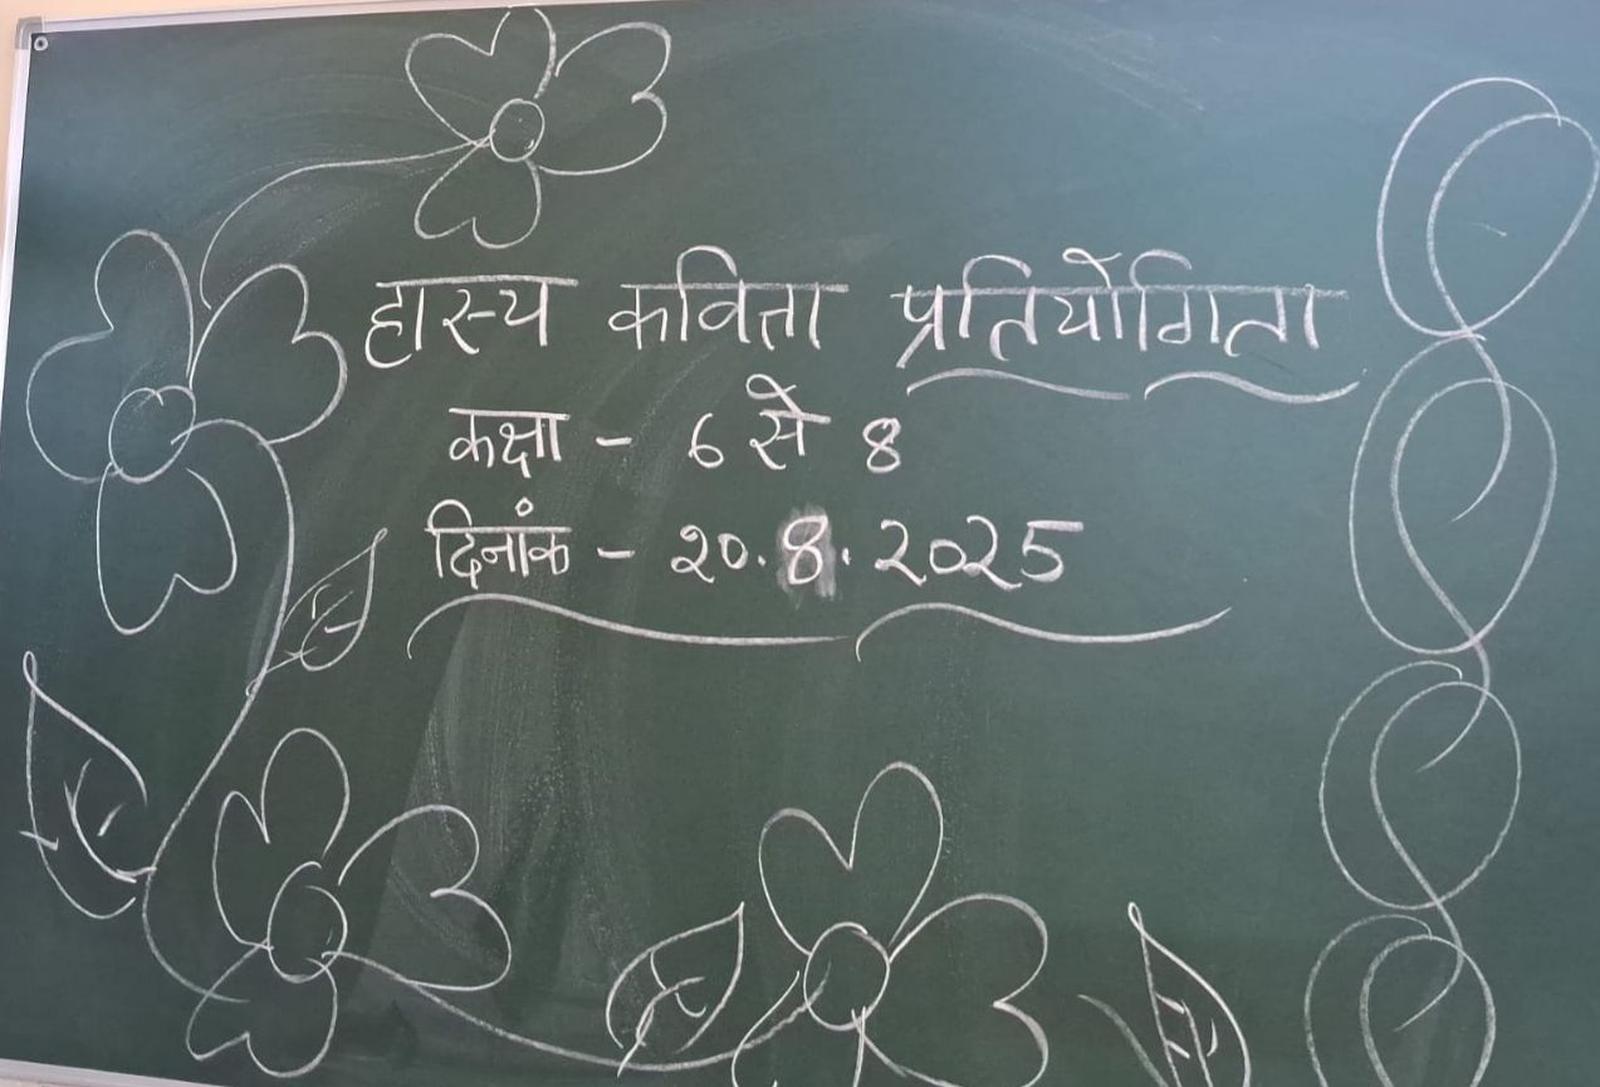 हास्य कविता प्रतियोगिता
कक्षा - 6 से 8
दिनांक - २0.8.2025